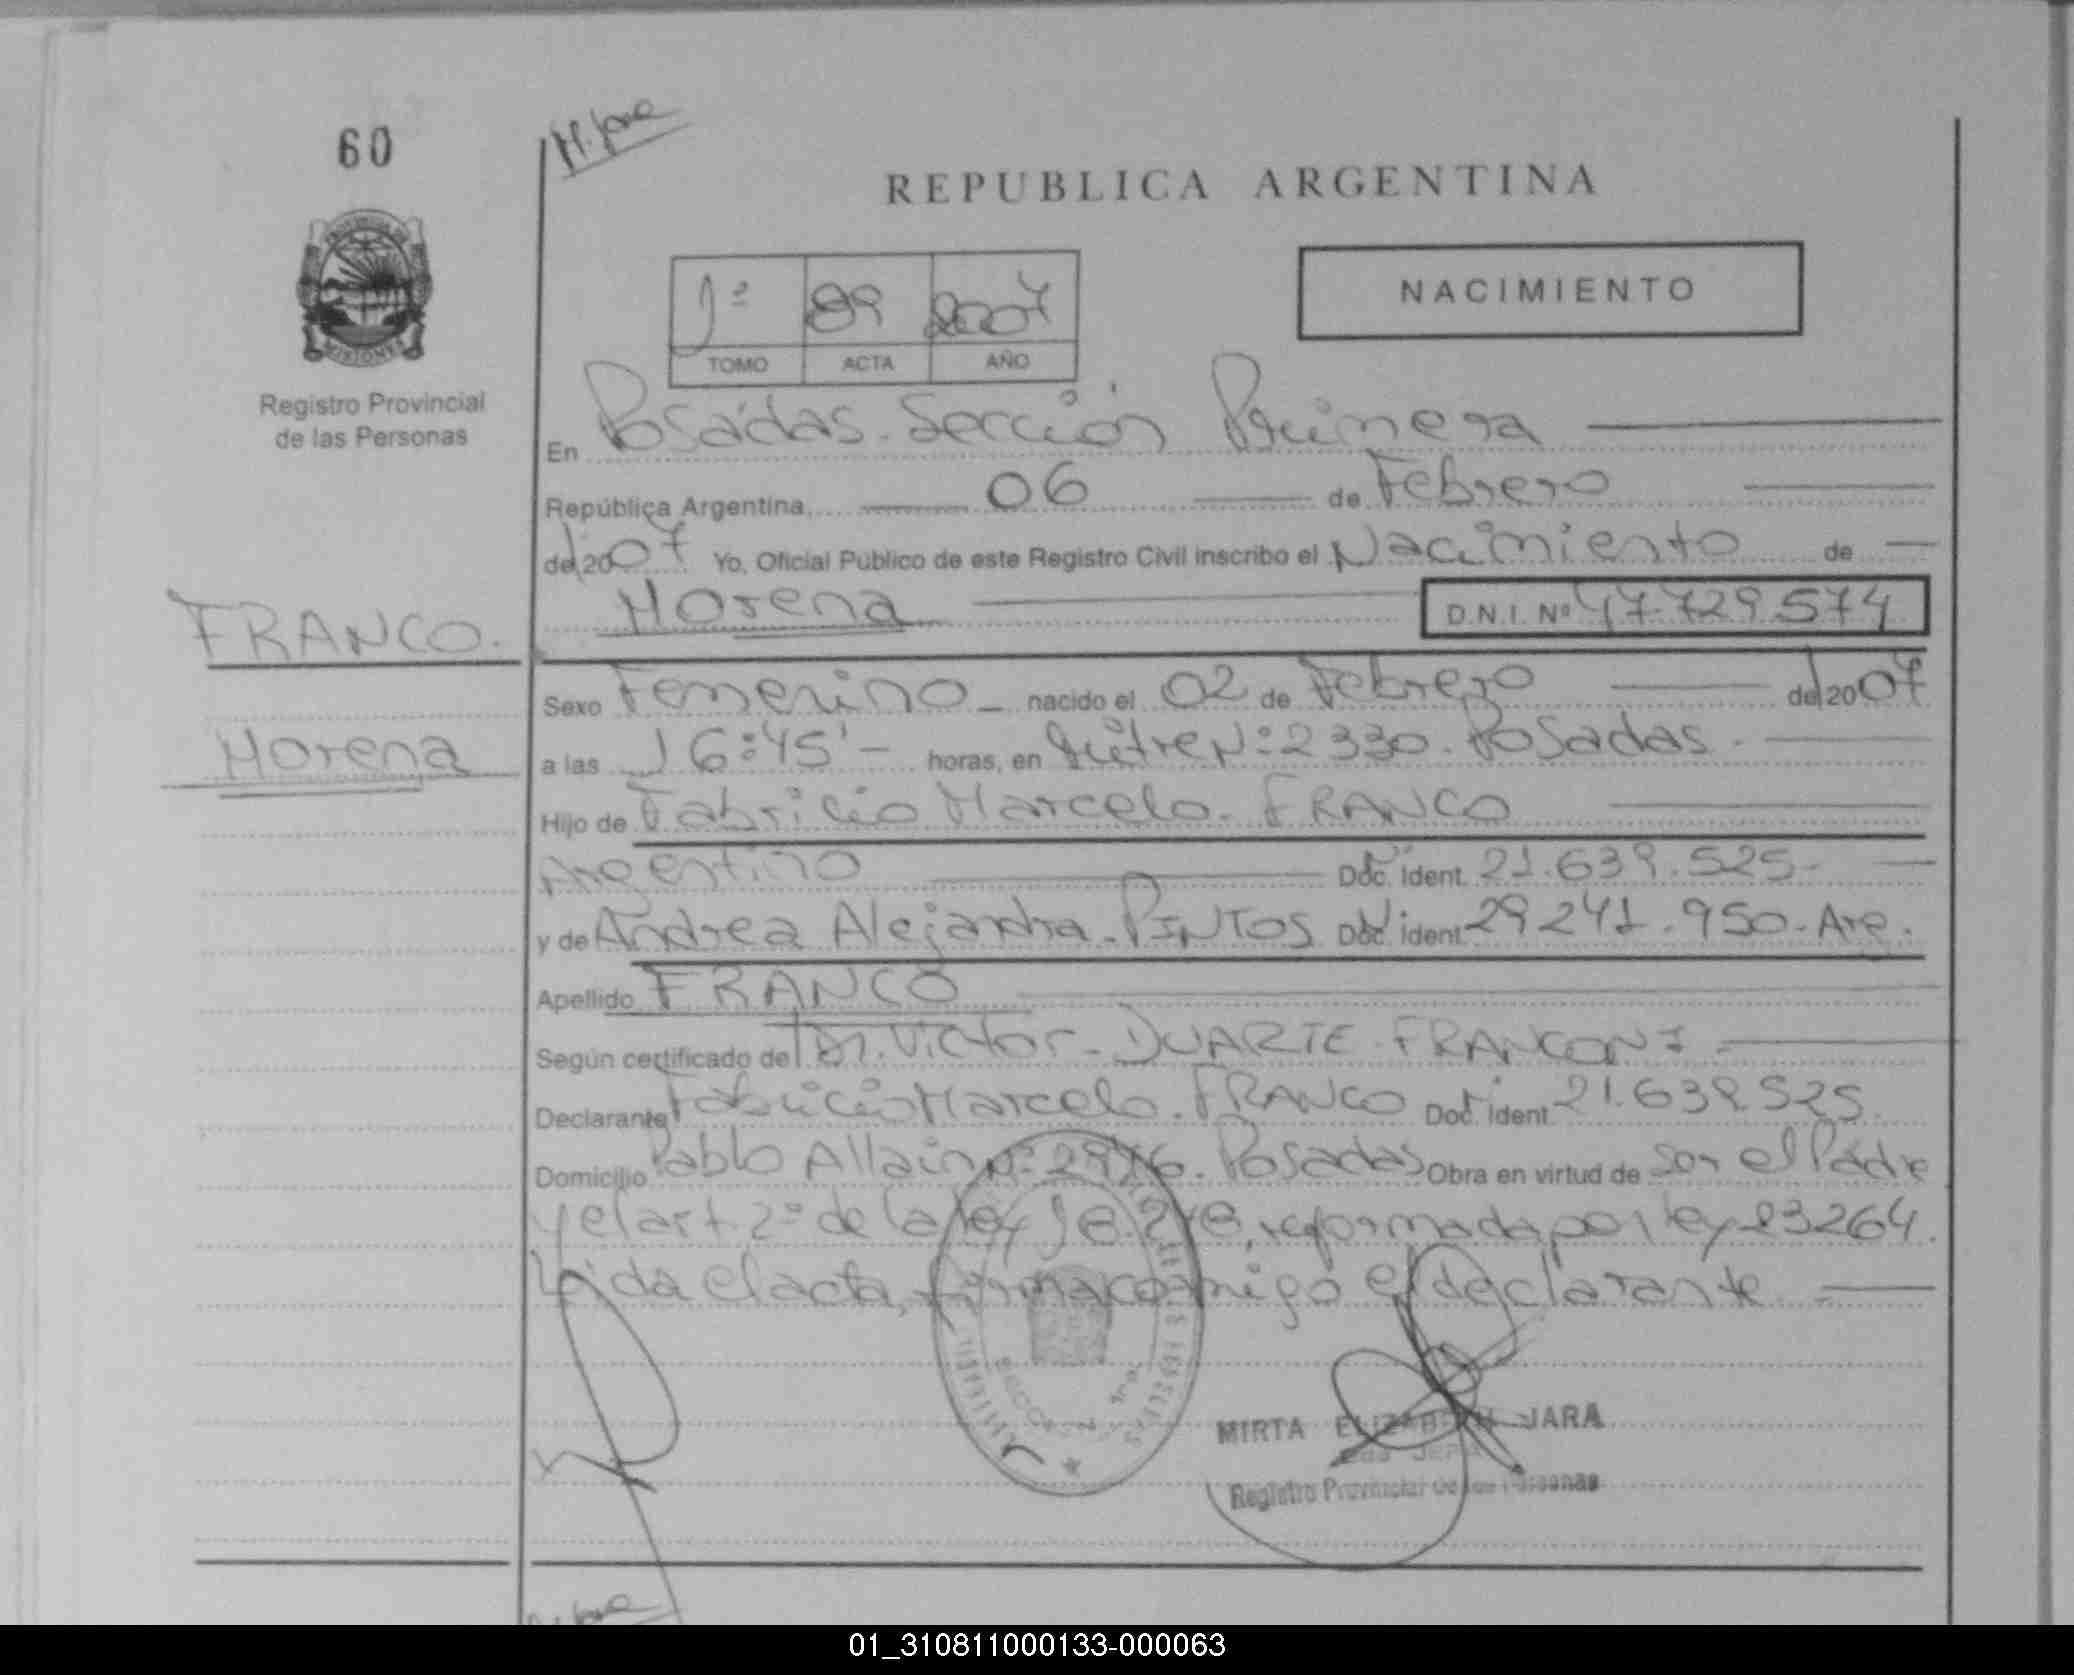 60
M. Jara
REPUBLICA ARGENTINA
PROVINCIA DE
MISIONES
Registro Provincial
de las Personas
1º 89 2007
TOMO ACTA AÑO
NACIMIENTO
En Posadas. Sección Primera
República Argentina, 06 de Febrero
del 2007 Yo, Oficial Público de este Registro Civil inscribo el Nacimiento de
Morena D.N.I. Nº 47.729.574
FRANCO.
Morena
Sexo Femenino nacido el 02 de Febrero del 2007
a las 16:45' horas, en Mitre Nº 2330. Posadas.
Hijo de Fabricio Marcelo. FRANCO
Argentino Doc. Ident. 21.639.525-
y de Andrea Alejandra. PINTOS Doc. Ident. 29.241.950- Arg.
Apellido FRANCO
Según certificado de Dr. Victor - DUARTE FRANCONI -
Declarante Fabricio Marcelo. FRANCO Doc. Ident. 21.639.525.
Domicilio Pablo Allain Nº 2976. Posadas Obra en virtud de ser el Padre
y el art 2º de la ley 18.248, reformada por ley 23264.
Leída el acta, firma conmigo el declarante
MIRTA ELIZABETH JARA
Registro Provincial de las Personas
01_310811000133-000063